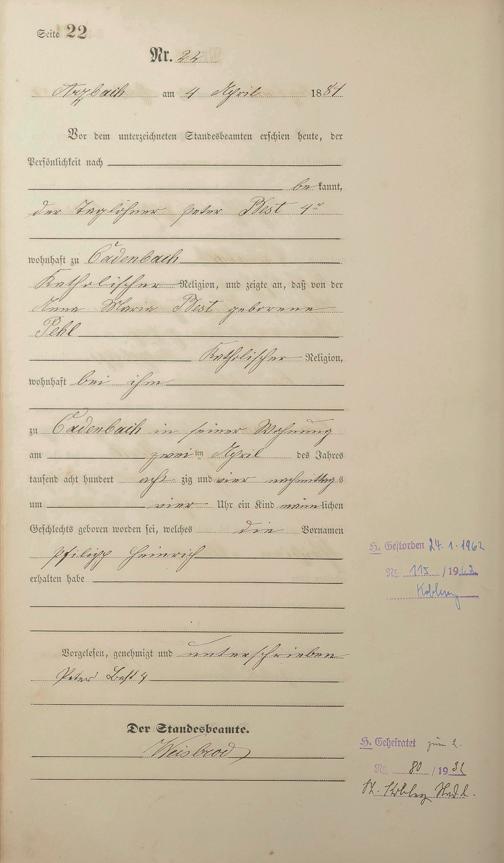 Seite 22
Nr. 22
Arzbach am 4 April 1884
Vor dem unterzeichneten Standesbeamten erschien heute, der
Persönlichkeit nach
be kannt,
der Taglöhner Peter Best 4r
wohnhaft zu Cadenbach
Katholischer Religion, und zeigte an, daß von der
Anna Maria Best geborene
Pehl
Katholischer Religion,
wohnhaft bei ihm
zu Cadenbach in seiner Wohnung
am zwei ten April des Jahres
tausend acht hundert acht zig und vier nachmittag s
um vier Uhr ein Kind männlichen
Geschlechts geboren worden sei, welches die Vornamen
Philipp Heinrich
erhalten habe
Vorgelesen, genehmigt und unterschrieben
Peter Best 4
Der Standesbeamte.
Weisbrod
H. Gestorben 24.1.1962
Nr. 115 /1962
Koblenz
H. Geheiratet zum 2.
Nr. 80 /19
St. Koblenz